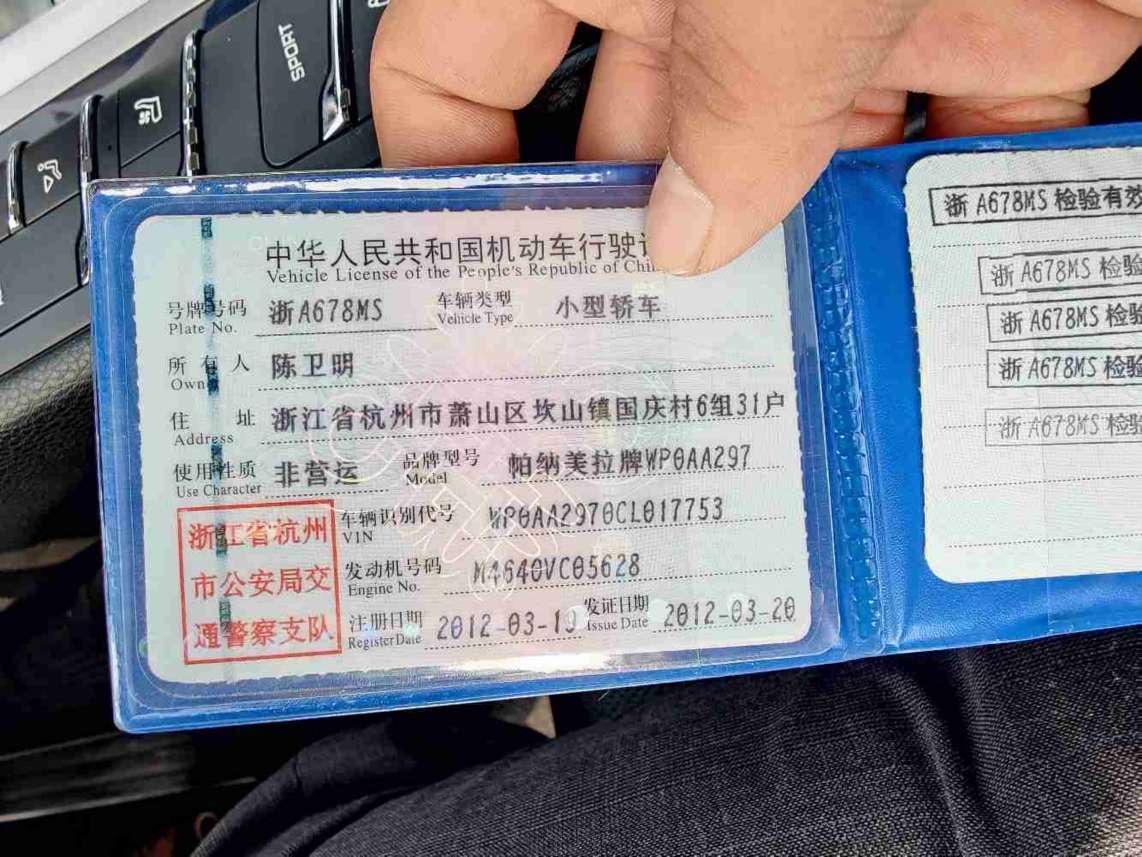 SPORT
中华人民共和国机动车行驶
Vehicle License of the People's Republic of Chi
号牌号码 浙A678MS 车辆类型 小型轿车
Plate No. Vehicle Type
所有人 陈卫明
Owner
住址 浙江省杭州市萧山区坎山镇国庆村6组31户
Address
使用性质 非营运 品牌型号 帕纳美拉牌WP0AA297
Use Character Model
浙江省杭州
市公安局交
通警察支队
车辆识别代号 WP0AA2970CL017753
VIN
发动机号码 M4640VC05628
Engine No.
注册日期 2012-03-19 发证日期 2012-03-20
Register Date Issue Date
浙A678MS 检验有效
浙A678MS 检验
浙A678MS 检验
浙A678MS 检验
浙A678MS 检验